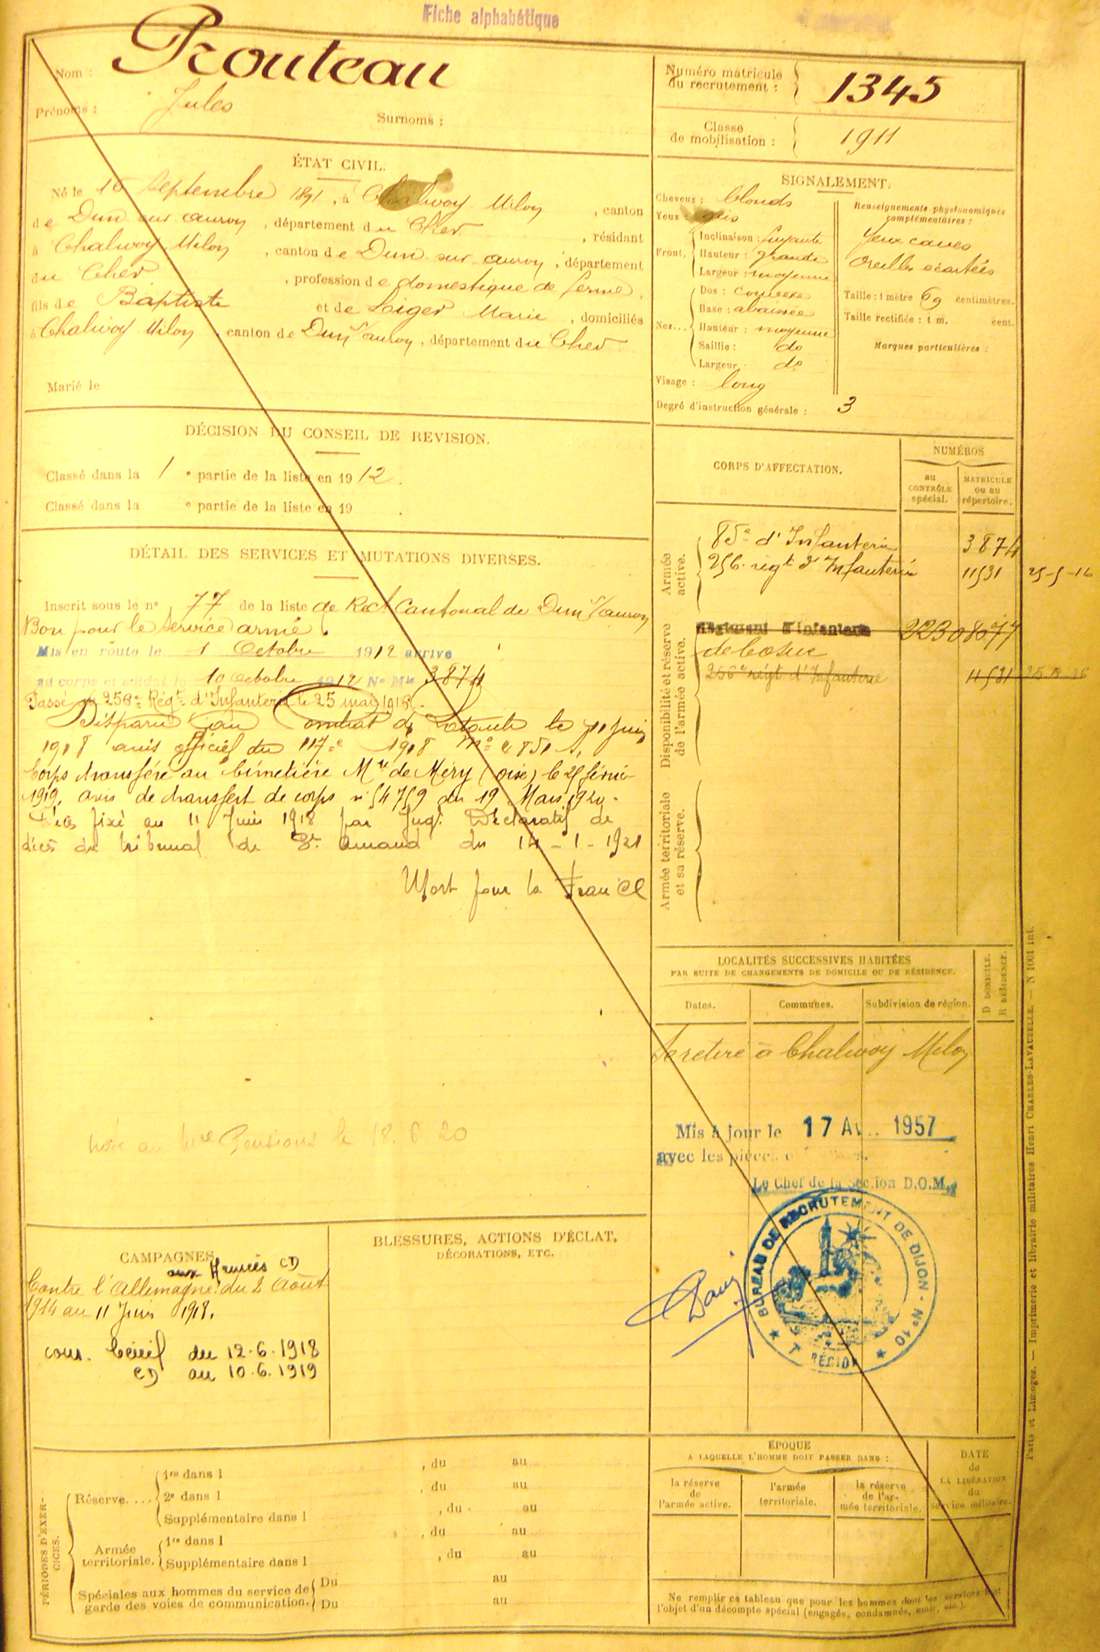 Fiche alphabétique
Nom : Prouteau
Prénoms : Jules
Surnoms :
Numéro matricule du recrutement : 1345
Classe de mobilisation : 1911
ÉTAT CIVIL.
Né le 10 Septembre 1891, à Chalivoy Milon, canton
de Dun sur auron, département du Cher, résidant
à Chalivoy Milon, canton de Dun sur auron, département
du Cher, profession de domestique de ferme,
fils de Baptiste et de Leiger Marie, domiciliés
à Chalivoy Milon, canton de Dun s/ auron, département du Cher
Marié le
SIGNALEMENT.
Cheveux : blonds
Yeux gris
Front. Inclinaison : fuyante
Hauteur : grande
Largeur : moyenne
Nez... Dos : convexe
Base : abaissée
Hauteur : moyenne
Saillie : do
Largeur : do
Visage : long
Degré d'instruction générale : 3
Renseignements physionomiques complémentaires :
Yeux caves
Oreilles écartées
Taille : 1 mètre 69 centimètres.
Taille rectifiée : 1 m. cent.
Marques particulières :
DÉCISION DU CONSEIL DE REVISION.
Classé dans la 1e partie de la liste en 1912.
Classé dans la e partie de la liste en 19
DÉTAIL DES SERVICES ET MUTATIONS DIVERSES.
Inscrit sous le no 77 de la liste de Rect Cantonal de Dun s/ auron
Bon pour le service armé
Mis en route le 1 Octobre 1912 arrivé
au corps et soldat le 10 Octobre 1912 No Mle 3874
Passé au 256e Régt d'Infanterie le 25 mai 1916.
Disparu au Combat de le 11 Juin
1918 avis officiel du 1918 No 2851
Corps transféré au Cimetière Mre de Méry (Oise) le 25 février
1919, avis de transfert de corps no 54759 du 19 Mars 1920.
Décès fixé au 11 Juin 1918 par Jugt Déclaratif de
décès du tribunal de St Amand du 14-1-1921
Mort pour la France
CORPS D'AFFECTATION.
NUMÉROS
au CONTRÔLE spécial.
MATRICULE ou au répertoire.
Armée active.
85e d'Infanterie 3874
256e régt d'Infanterie 11531 25-5-16
Disponibilité et réserve de l'armée active.
Régiment d'Infanterie 223 08077
de Cosne
256e régt d'Infanterie 11531
Armée territoriale et sa réserve.
LOCALITÉS SUCCESSIVES HABITÉES
PAR SUITE DE CHANGEMENTS DE DOMICILE OU DE RÉSIDENCE.
Dates.
Communes.
Subdivision de région.
D DOMICILE.
R RÉSIDENCE.
Se retire à Chalivoy Milon
Mis à jour le 17 Av.. 1957
avec les pièces
Le Chef de la Section D.O.M.
BUREAU DE RECRUTEMENT DE DIJON No 10
7 RÉGION
Pensions le 18.6.20
CAMPAGNES
aux Armées CD
Contre l'Allemagne : du 2 Août
1914 au 11 Juin 1918.
CD du 12.6.1918
au 10.6.1919
BLESSURES, ACTIONS D'ÉCLAT,
DÉCORATIONS, ETC.
PÉRIODES D'EXERCICES.
Réserve.... 1re dans l , du au
2e dans l , du au
Supplémentaire dans l , du au
Armée territoriale. 1re dans l , du au
Supplémentaire dans l , du au
Spéciales aux hommes du service de garde des voies de communication. Du au
Du au
ÉPOQUE
A LAQUELLE L'HOMME DOIT PASSER DANS :
la réserve de l'armée active.
l'armée territoriale.
la réserve de l'armée territoriale.
DATE de LA LIBÉRATION du service militaire.
Ne remplir ce tableau que pour les hommes dont les services font
l'objet d'un décompte spécial (engagés, condamnés, omis, etc.).
Paris et Limoges. — Imprimerie et librairie militaires Henri CHARLES-LAVAUZELLE. — N 1001 int.